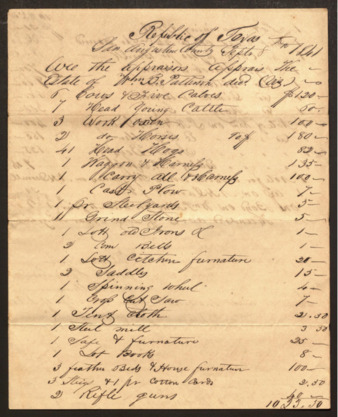 Republic of Texas
San Augustine County Sept 1841
Wee the appraisers Appraise the
Estate of John B. decd
6 Cows & five Calves $120 —
7 Head young Cattle 50 -
3 Work 100 —
2 do Horses 180 —
41 Head Hogs 82 —
1 Waggon & Harness 135 —
1 Carry all & Harness 100 —
1 Plow 7 —
1 pr Steelyards 5
11 Grind Stone 5
1 Lott old Irons & 1 —
2 Bells 1 —
1 Lott furnature 20 —
2 Saddles 15 —
1 Spinning wheel 4 —
1 Cross Cut Saw 7 —
1 Cloth 2.50
1 Steel mill 3 50
1 Safe & furnature 25 —
1 Lot Books 8 —
3 feather Beds & House furnature 100 —
& 1 pr Cotton Cards 2.50
2 Rifle guns 40 —